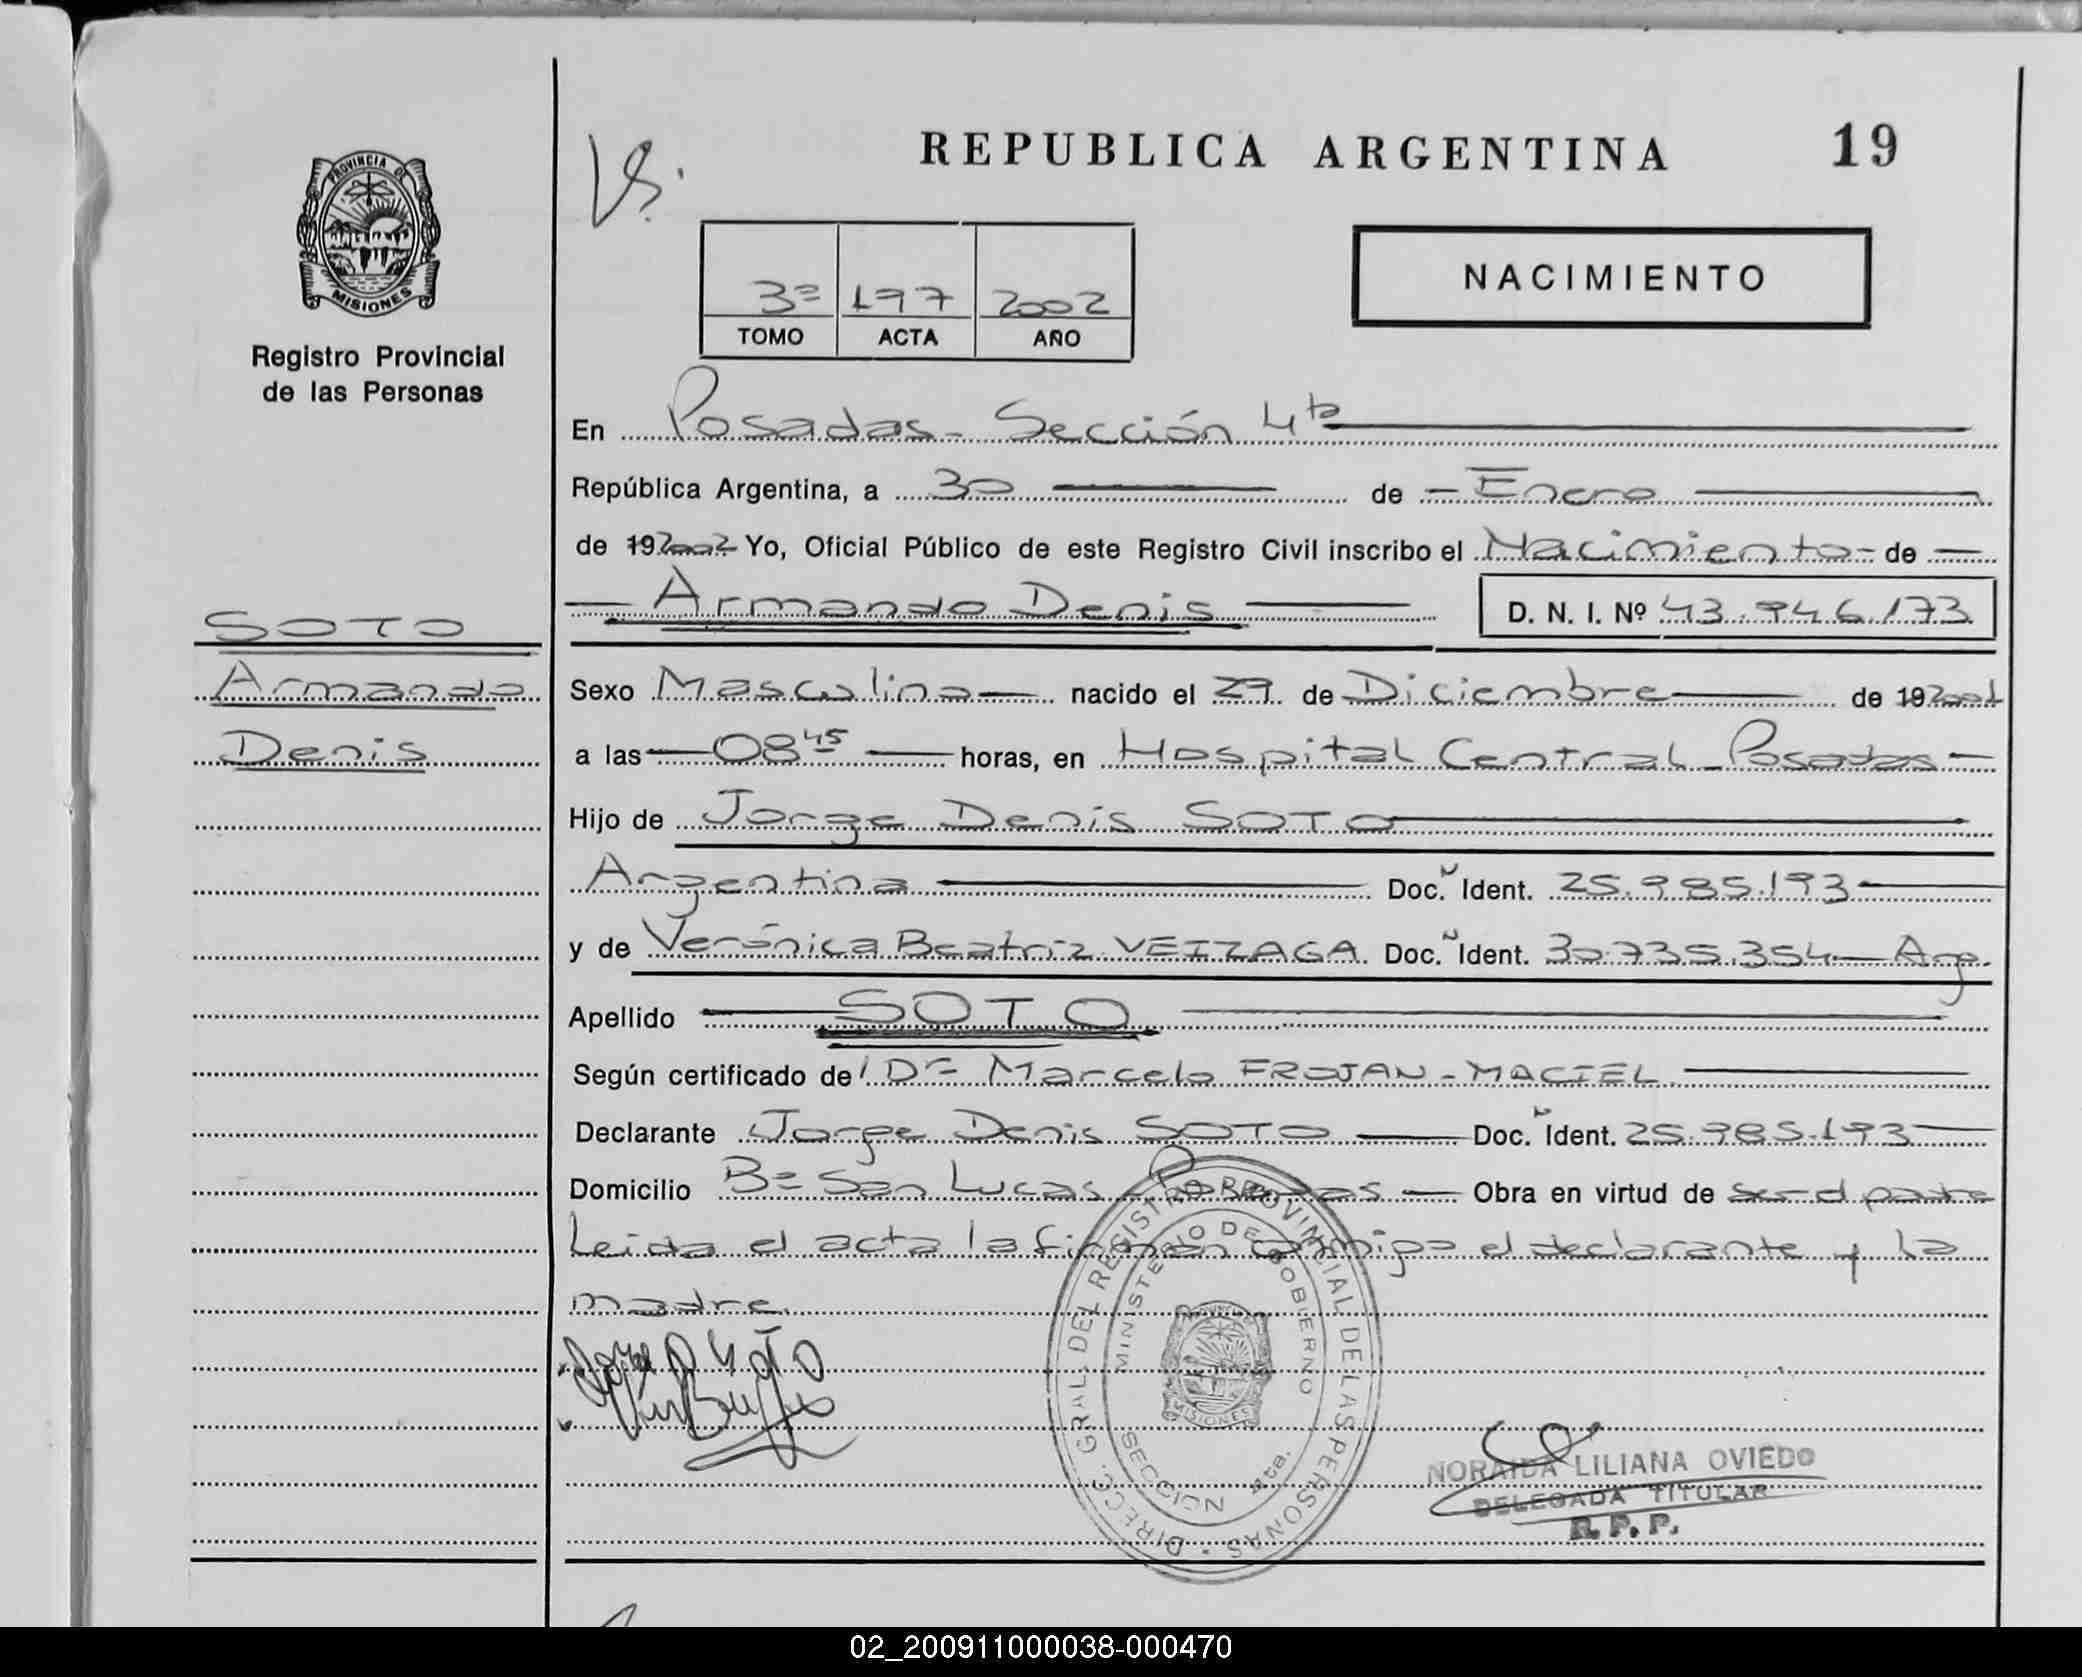 REPUBLICA ARGENTINA 19
PROVINCIA DE
MISIONES
Registro Provincial
de las Personas
NACIMIENTO
3º 197 2002
TOMO ACTA AÑO
En Posadas - Sección 4ta
República Argentina, a 30 de Enero
de 19 2002 Yo, Oficial Público de este Registro Civil inscribo el Nacimiento de
Armando Denis D. N. I. Nº 43.946.173
SOTO
Armando
Denis
Sexo Masculino nacido el 29 de Diciembre de 19 2001
a las 08 45 horas, en Hospital Central - Posadas
Hijo de Jorge Denis SOTO
Argentina Doc. Ident. 25.985.193
y de Verónica Beatriz VEIZAGA Doc. Ident. 30.735.354 - Arg.
Apellido SOTO
Según certificado de Dr Marcelo FROJAN - MACIEL
Declarante Jorge Denis SOTO Doc. Ident. 25.985.193
Domicilio Bº San Lucas - Posadas Obra en virtud de ser el padre
Leida el acta la firman conmigo el declarante y la
madre.
DIRECC. GRAL. DEL REGISTRO PROVINCIAL DE LAS PERSONAS
MINISTERIO DE GOBIERNO
PROVINCIA
MISIONES
SECCION 4ta.
NORAIDA LILIANA OVIEDO
DELEGADA TITULAR
R. P. P.
02_200911000038-000470